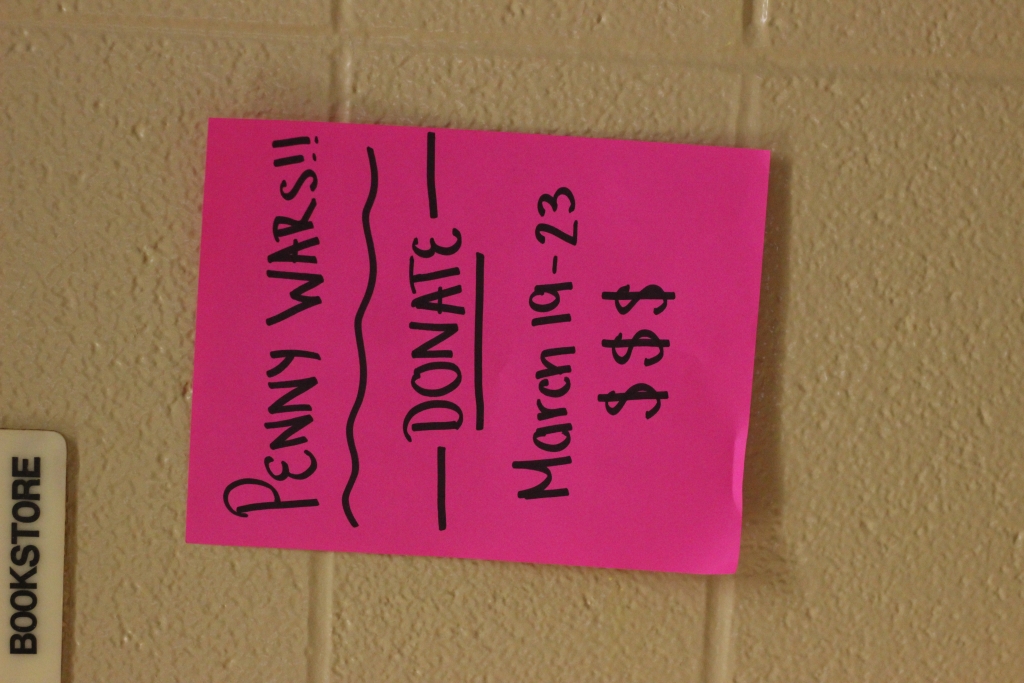 PENNY WARS!!
— DONATE —
March 19-23
$$$
BOOKSTORE